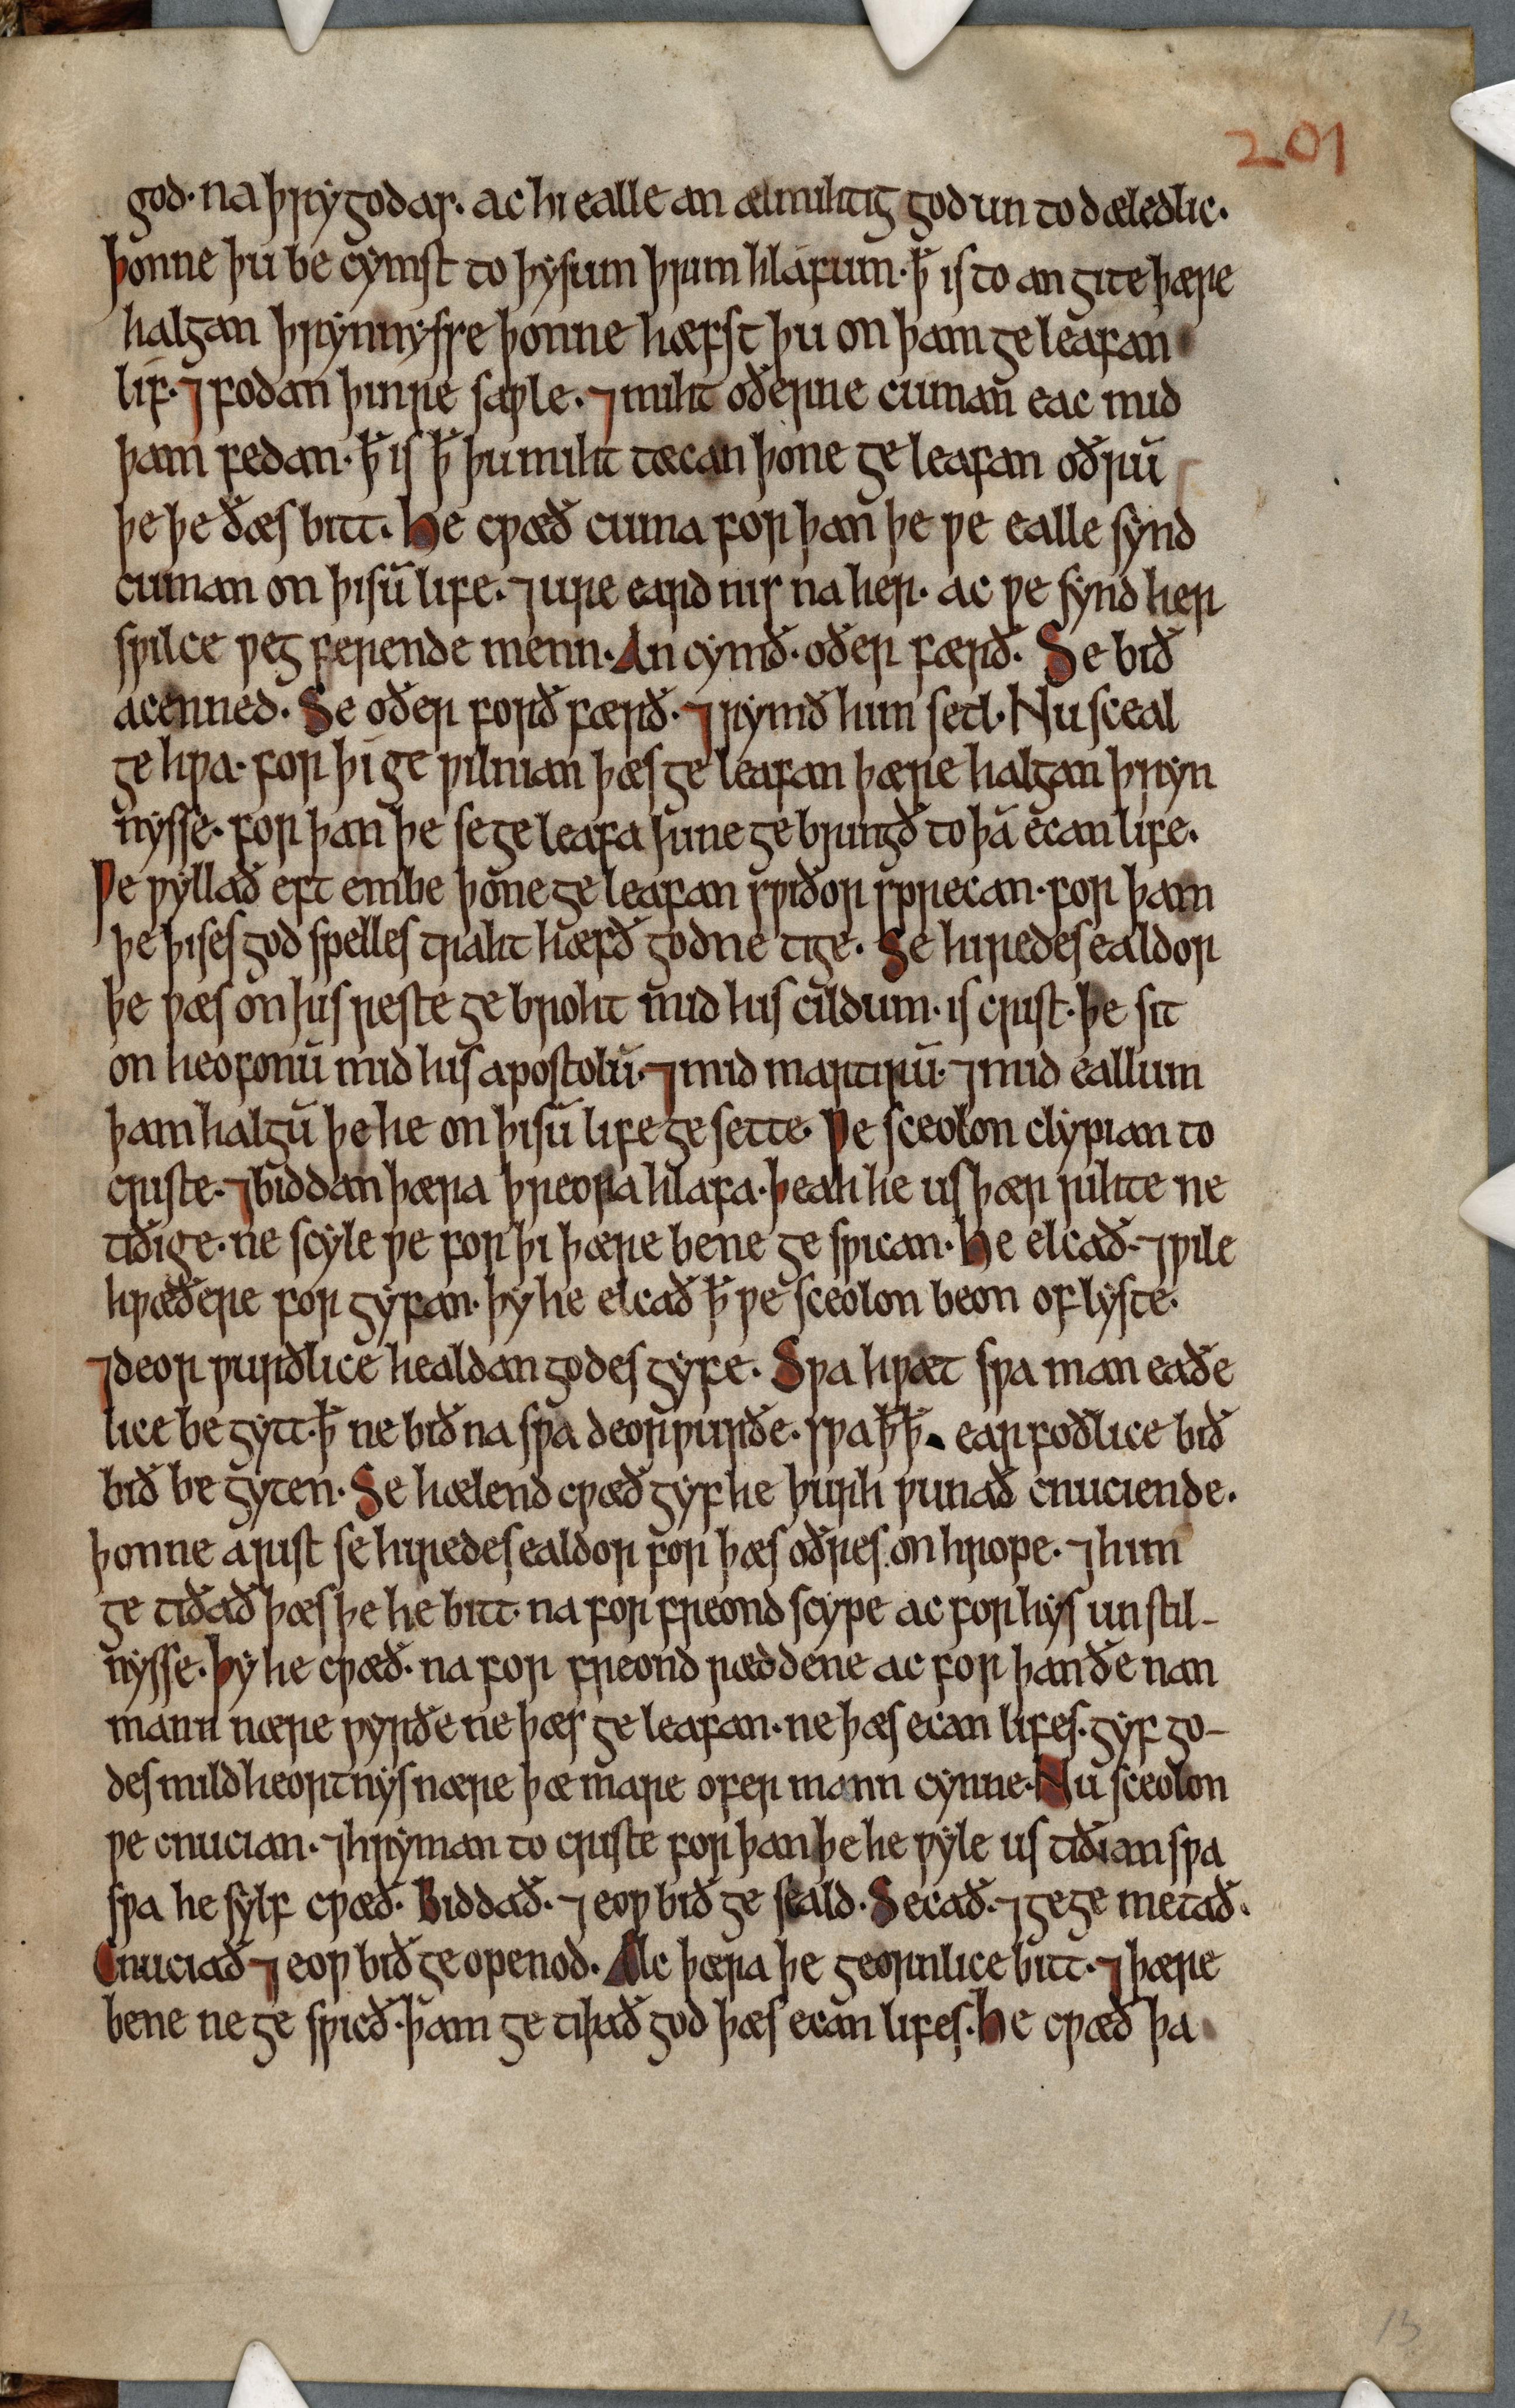 201
god· na þry godas· ac hi ealle an ælmihtig god un to dæledlic·
þonne þu be cymst to þysum þrim hlafum· ꝥ is to an gite þære
halgan þrynnysse þonne hæfst þu on þam ge leafan
lif· ⁊ fodan þinre saƿle· ⁊ miht oðerne cuman eac mid
þam fedan· ꝥ is ꝥ þu miht tæcan þone ge leafan oðrū
þe þe ðæs bitt· He cƿæð cuma for þan þe ƿe ealle synd
cuman on þisū life· ⁊ ure eard nis na her· ac ƿe synd her
sƿilce ƿeg ferende menn· An cymð· oðer færð· Se bið
acenned· Se oðer forð færð· ⁊ rymð him setl· Nu sceal
ge hƿa· for þi ge ƿilnian þæs ge leafan þære halgan þryn
nysse· for þan þe se ge leafa hine ge bringð to þā ecan life·
Ƿe ƿyllað eft embe þone ge leafan sƿiðor sprecan· for þam
þe þises god spelles traht hæfð godne tige· Se hiredes ealdor
þe ƿæs on his reste ge broht mid his cildum· is crist· þe sit
on heofonū mid his apostolū· ⁊ mid martirū· ⁊ mid eallum
þam halgū þe he on þisū life ge sette· Ƿe sceolon clypian to
criste· ⁊ biddan þæra þreora hlafa· þeah he us þær rihte ne
tiðige· ne scyle ƿe for þi þære bene ge sƿican· He elcað· ⁊ ƿile
hƿæðere for gyfan· þy he elcað ꝥ ƿe sceolon beon of lyste·
⁊ deor ƿurðlice healdan godes gyfe· Sƿa hƿæt sƿa man eaðe
lice be gytt· ꝥ ne bið na sƿa deorƿurðe· sƿa ꝥ ꝥ earfoðlice bið
bið be gyten· Se hælend cƿæð gyf he þurh ƿunað cnuciende·
þonne arist se hiredes ealdor for þæs oðres on hrope· ⁊ him
ge tiðað þæs þe he bitt· na for freond scype ac for hys un stil-
nysse· Þy he cƿæð· na for freond ræddene ac for þan ðe nan
mann nære ƿyrðe ne þæs ge leafan· ne þæs ecan lifes· gyf go-
des mildheortnys nære þæ mare ofer mann cynne· Nu sceolon
ƿe cnucian· ⁊ hryman to criste for þan þe he ƿyle us tiðian sƿa
sƿa he sylf cƿæð· Biddað· ⁊ eoƿ bið ge seald· Secað· ⁊ ge ge metað·
Cnuciað ⁊ eoƿ bið ge openod· Ælc þæra þe geornlice bitt· ⁊ þære
bene ne ge sƿicð· þam ge tiþað god þæs ecan lifes· He cƿæð þa
13